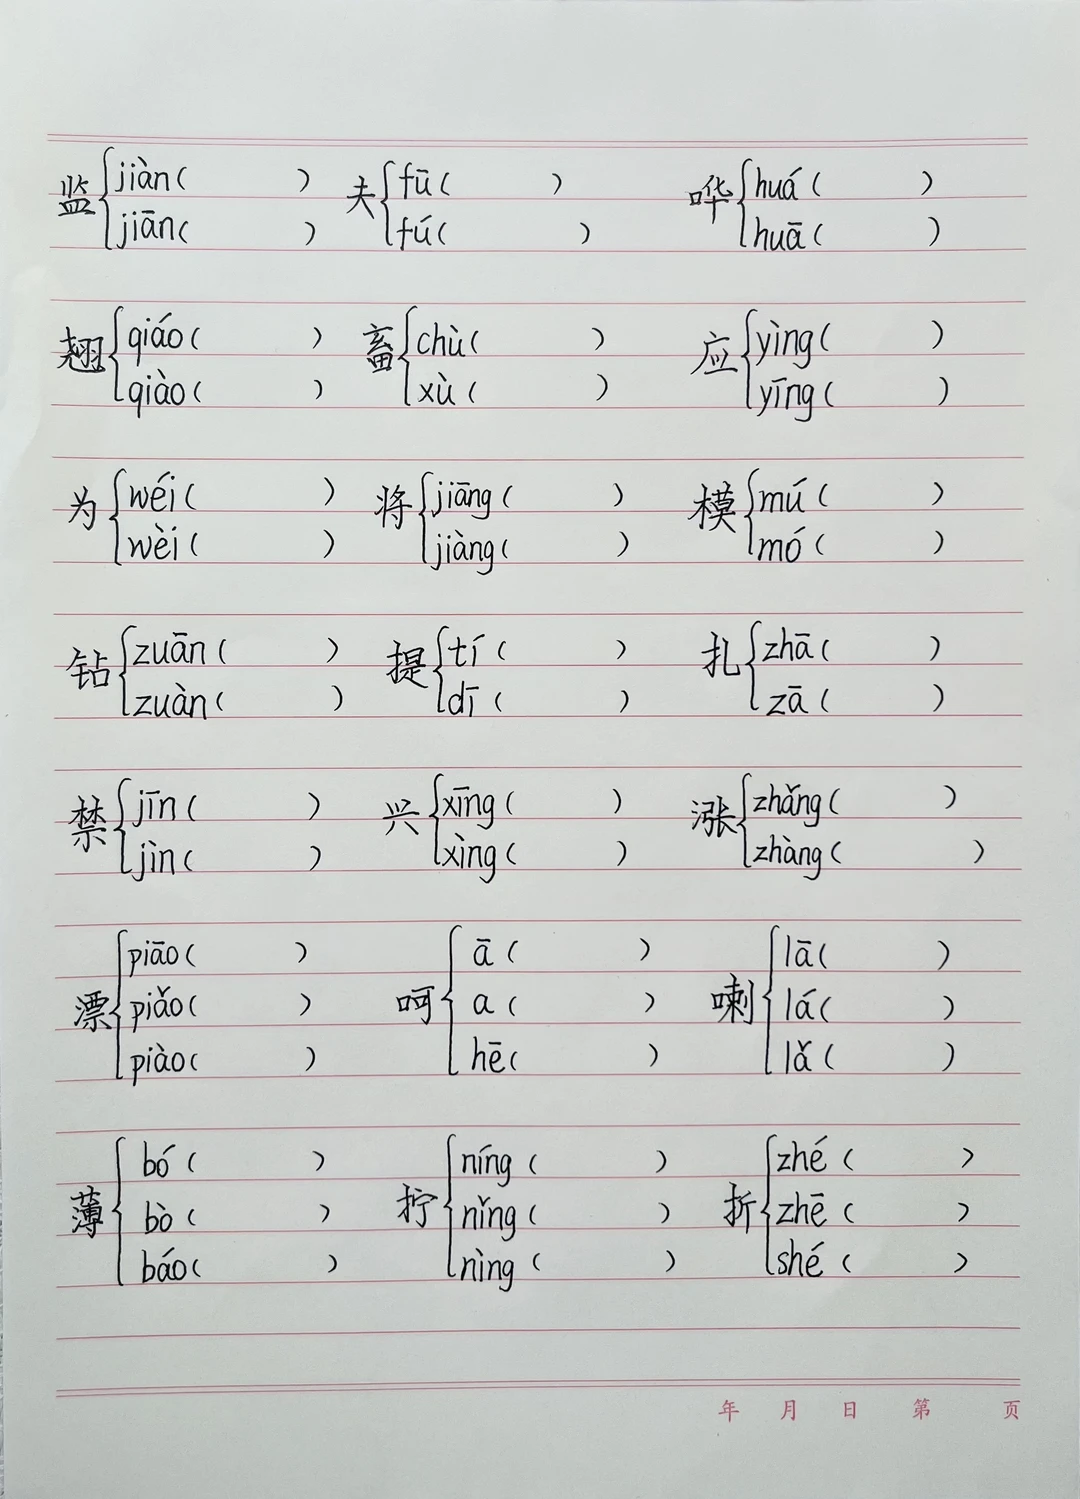 监 jiàn( ) 夫 fū( ) 哗 huá( )
jiān( ) fú( ) huā( )
翘 qiáo( ) 畜 chù( ) 应 yìng( )
qiào( ) xù( ) yīng( )
为 wéi( ) 将 jiāng( ) 模 mú( )
wèi( ) jiàng( ) mó( )
钻 zuān( ) 提 tí( ) 扎 zhā( )
zuàn( ) dī( ) zā( )
禁 jīn( ) 兴 xīng( ) 涨 zhǎng( )
jìn( ) xìng( ) zhàng( )
piāo( ) ā( ) lā( )
漂 piǎo( ) 呵 a( ) 喇 lá( )
piào( ) hē( ) lǎ( )
bó( ) níng( ) zhé( )
薄 bò( ) 拧 nǐng( ) 折 zhē( )
báo( ) nìng( ) shé( )
年 月 日 第 页